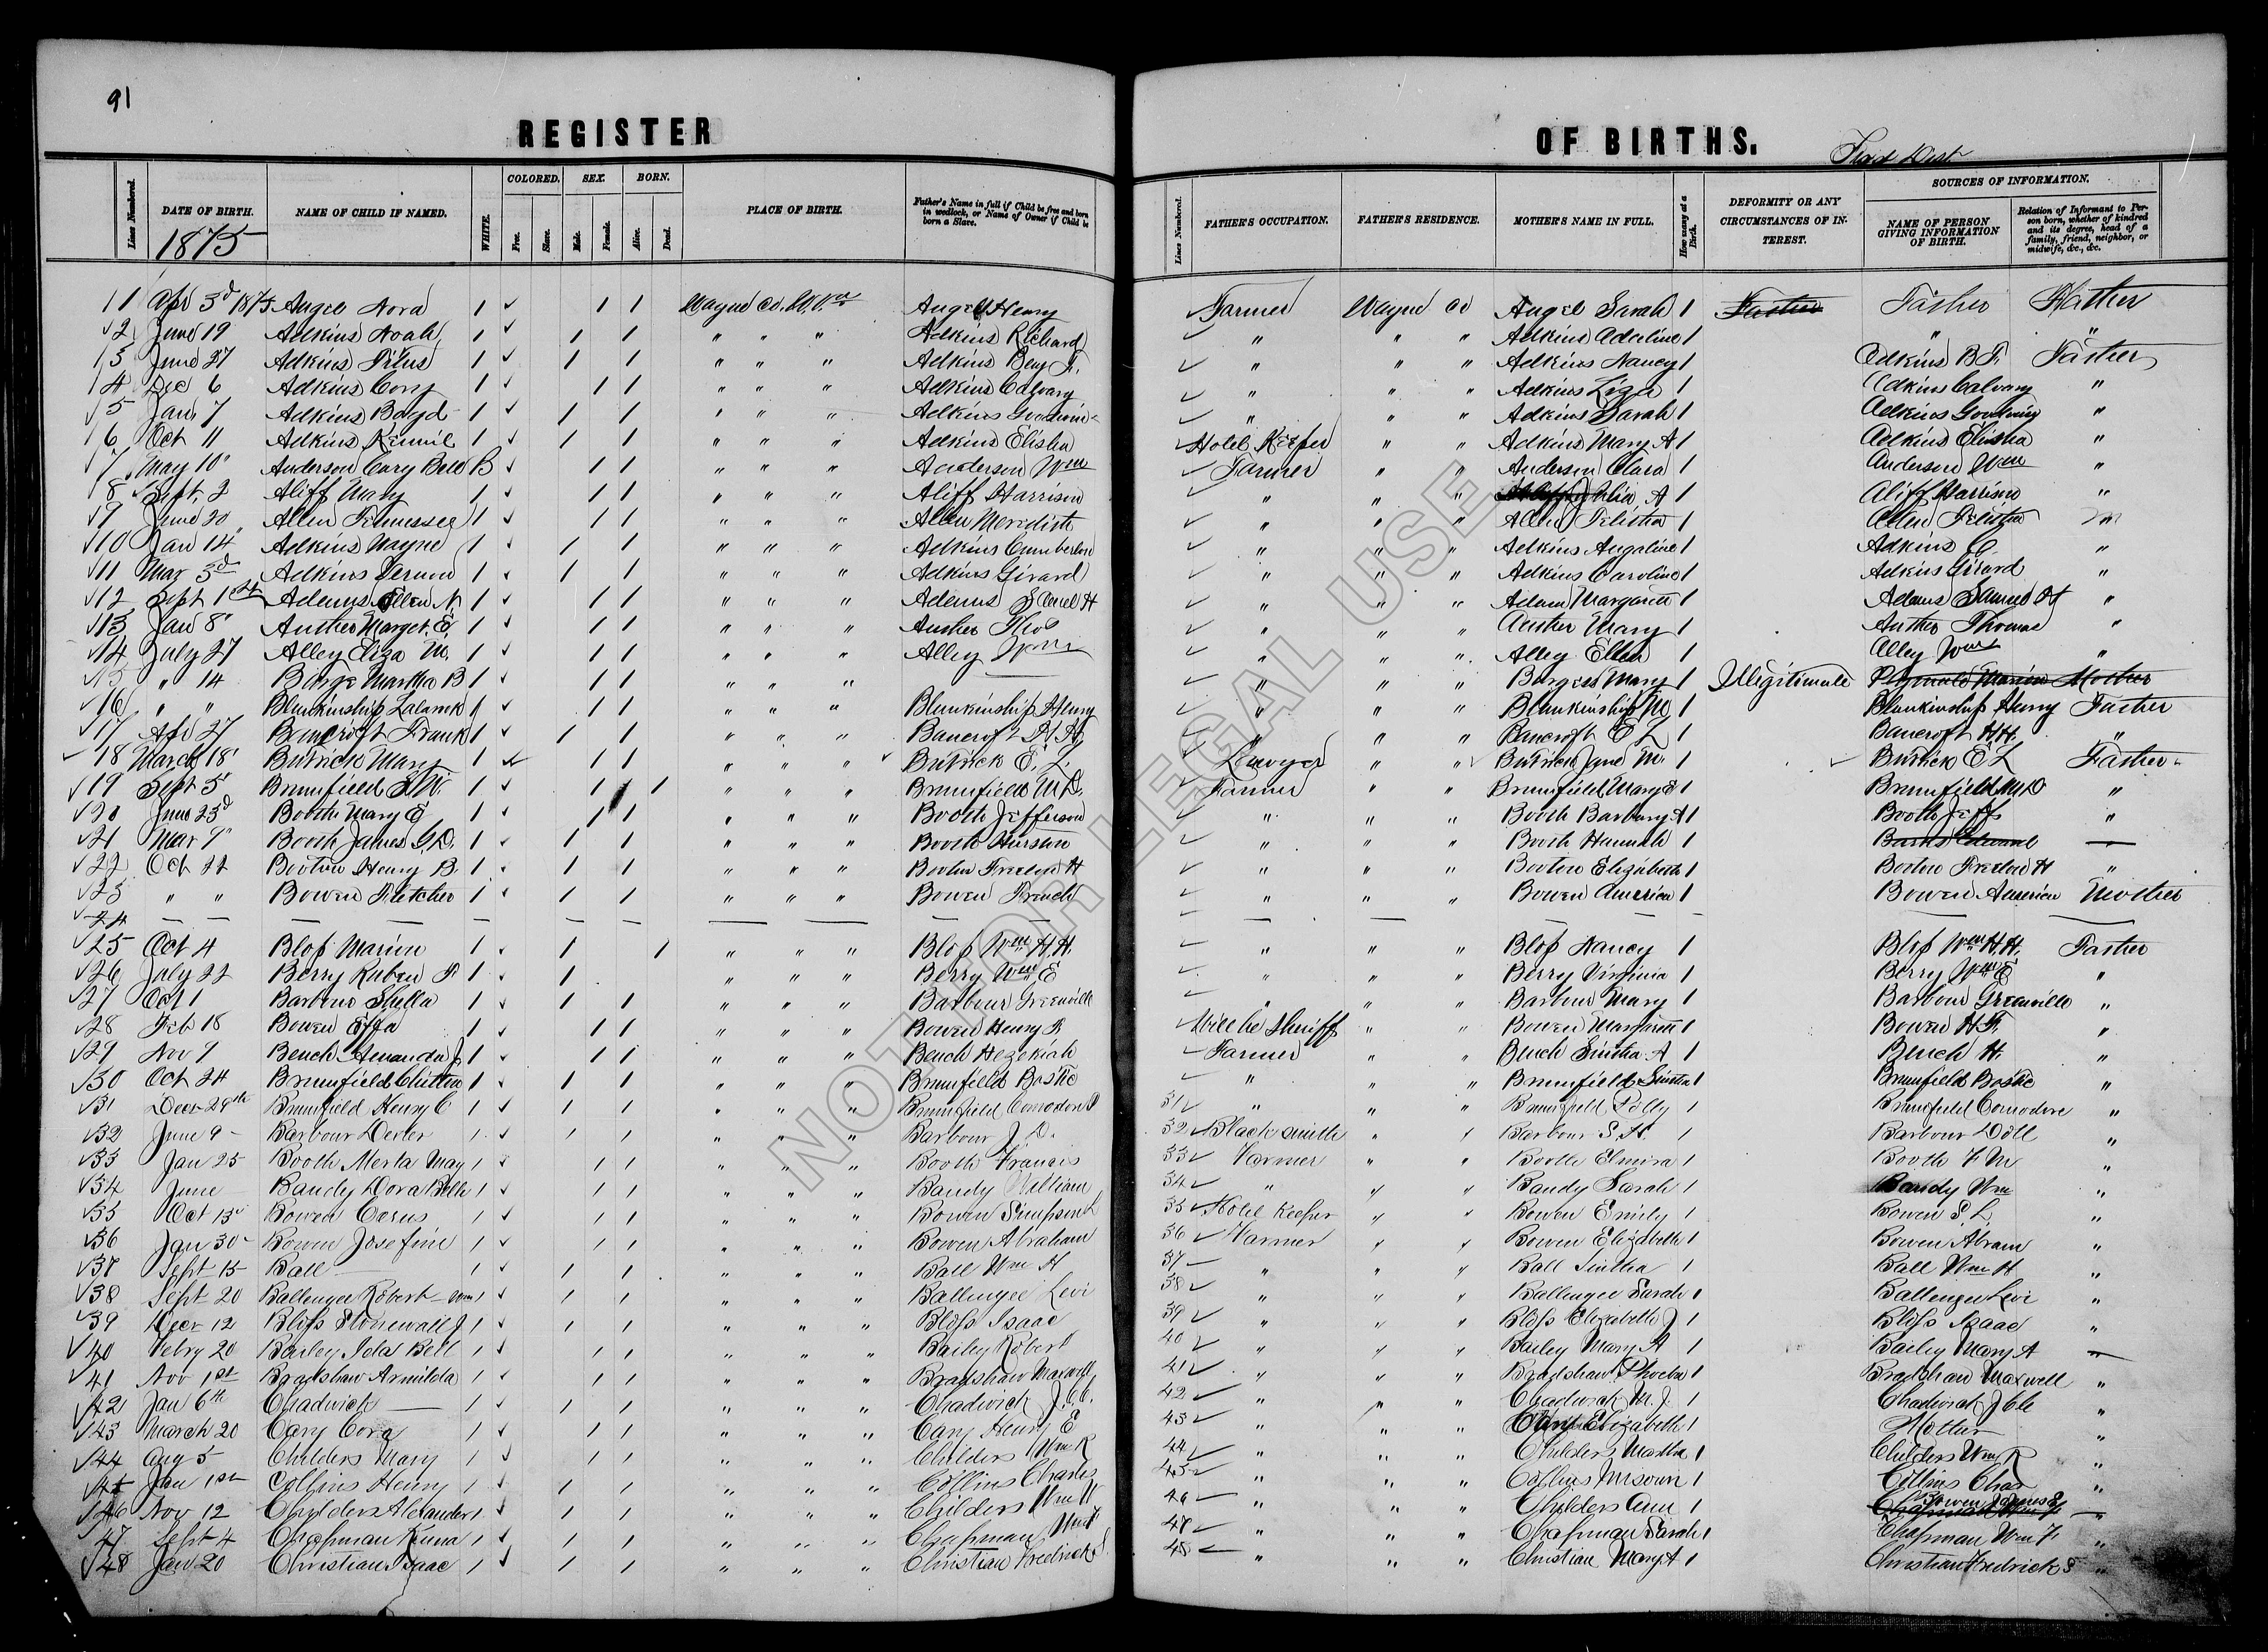 91
REGISTER OF BIRTHS.
First Dist
Lines Numbered. DATE OF BIRTH. NAME OF CHILD IF NAMED. WHITE. COLORED. Free. Slave. SEX. Male. Female. BORN. Alive. Dead. PLACE OF BIRTH. Father's Name in full if Child be free and born in wedlock, or Name of Owner if Child be born a Slave. Lines Numbered. FATHER'S OCCUPATION. FATHER'S RESIDENCE. MOTHER'S NAME IN FULL. How many at a Birth. DEFORMITY OR ANY CIRCUMSTANCES OF INTEREST. SOURCES OF INFORMATION. NAME OF PERSON GIVING INFORMATION OF BIRTH. Relation of Informant to Person born, whether of kindred and its degree, head of a family, friend, neighbor, or midwife, &c., &c.
1875
1 Apr 3d 1875 Angel Nora 1 ✓ 1 1 Wayne Co. W. Va Angel Henry Farmer Wayne Co Angel Sarah 1 Father Father
2 June 19 Adkins Noah 1 ✓ 1 1 " " " Adkins Richard " " " Adkins Adaline 1 " "
3 June 27 Adkins Titus 1 ✓ 1 1 " " " Adkins Benj F. " " " Adkins Nancy 1 Adkins B F. Father
4 Dec 6 Adkins Cory 1 ✓ 1 1 " " " Adkins Calvary " " " Adkins Liza 1 Adkins Calvary "
5 Jan 7 Adkins Boyd 1 ✓ 1 1 " " " Adkins Goodwin " " " Adkins Sarah 1 Adkins Goodwin "
6 Oct 11 Adkins 1 ✓ 1 1 " " " Adkins Elisha Hotel Keeper " " Adkins Mary A 1 Adkins Elisha "
7 May 10 Anderson Cary Bell B ✓ 1 1 " " " Anderson Wm Farmer " " Anderson Clara 1 Anderson Wm "
8 Sept 2 Aliff Mary 1 ✓ 1 1 " " " Aliff Harrison " " " Aliff Julia A 1 Aliff Harrison "
9 June 20 Allen Tennessee 1 ✓ 1 1 " " " Allen Meredith " " " Allen Felistia 1 Allen Felistia M
10 Jan 14 Adkins Wayne 1 ✓ 1 1 " " " Adkins Cumberlan " " " Adkins Angaline 1 Adkins C. "
11 Mar 3d Adkins Vernon 1 ✓ 1 1 " " " Adkins Girard " " " Adkins Caroline 1 Adkins Girard "
12 Sept 1st Adams Ellen N. 1 ✓ 1 1 " " " Adams Samel H " " " Adams Margarett 1 Adams Samuel H "
13 Jan 8 Auther Marget. E. 1 ✓ 1 1 " " " Auther Thos " " " Auther Mary 1 Auther Thomas "
14 July 27 Alley Eliza M. 1 ✓ 1 1 " " " Alley Wm " " " Alley Ellen 1 Alley Wm "
15 " 14 Martha B 1 ✓ 1 1 " " " — " " " Burgess Mary 1 Illegitimate Mother
16 " " Blankinship 1 ✓ 1 1 " " " Blankinship Henry " " " Blankinship M. 1 Blankinship Henry Father
17 Apr 27 Bancroft Frank 1 ✓ 1 1 " " " Bancroft H. H. " " " Bancroft E L 1 Bancroft H.H. "
18 March 18 Butrick Mary 1 ✓ 1 1 " " " Butrick E. L. Lawyer " " Butrick Jane M. 1 Butrick E L Father
19 Sept 5 Brumfield 1 ✓ 1 1 " " " Brumfield M D. Farmer " " Brumfield Mary E 1 Brumfield M D "
20 June 23d Booth Mary E 1 ✓ 1 1 " " " Booth Jefferson " " " Booth Barbary A 1 Booth Jeff "
21 Mar 9 Booth James G. D. 1 ✓ 1 1 " " " Booth Hurston " " " Booth Hannah 1 —
22 Oct 22 Booton Henry B. 1 ✓ 1 1 " " " Booton Freelin H " " " Booton Elizabeth 1 Booton Freelin H "
23 " " Bowen Fletcher 1 ✓ 1 1 " " " Bowen French " " " Bowen America 1 Bowen America Mother
24 — — — — — — — — — — — — —
25 Oct 4 Bloss Marion 1 ✓ 1 1 " " " Bloss Wm H. H. " " " Bloss Nancy 1 Bloss Wm H H. Father
26 July 22 Berry Ruben F 1 ✓ 1 " " " Berry Wm E " " " Berry Virginia 1 Berry Wm E "
27 Oct 1 Barbour Shella 1 ✓ 1 1 " " " Barbour Greenville " " " Barbour Mary 1 Barbour Greenville "
28 Feb 18 Bowen Effa 1 ✓ 1 1 " " " Bowen Henry F. Sheriff " " Bowen Margarett 1 Bowen H F. "
29 Nov 9 Bench Amanda J 1 ✓ 1 1 " " " Bench Hezekiah Farmer " " Bench Sintha A 1 Bench H. "
30 Oct 24 Brumfield 1 ✓ 1 1 " " " Brumfield Bostic " " " Brumfield Sintha 1 Brumfield Bostic "
31 Decr 29th Brumfield Henry C 1 ✓ 1 1 " " " Brumfield Comodore P 31 " " " Brumfield Polly 1 Brumfield Comodore "
32 June 9 Barbour Dexter 1 ✓ 1 1 " " " Barbour J. D. 32 Blacksmith " " Barbour S. H. 1 Barbour "
33 Jan 25 Booth Merta May 1 ✓ 1 1 " " " Booth Francis 33 Farmer " " Booth Elmira 1 Booth F M "
34 June Bandy Dora Belle 1 ✓ 1 1 " " " Bandy William 34 " " " Bandy Sarah 1 Bandy Wm "
35 Oct 13 Bowen Cerus 1 ✓ 1 1 " " " Bowen Simpson L 35 Hotel Keeper " " Bowen Emily 1 Bowen S. L. "
36 Jan 30 Bowen Josefine 1 ✓ 1 1 " " " Bowen Abraham 36 Farmer " " Bowen Elizabeth 1 Bowen Abram "
37 Sept 15 Ball — 1 ✓ 1 1 " " " Ball Wm H 37 " " " Ball Sintha 1 Ball Wm H "
38 Sept 20 Ballengee Robert Wm 1 ✓ 1 1 " " " Ballengee Levi 38 " " " Ballengee Sarah 1 Ballengee Levi "
39 Decr 12 Bloss Stonewall J 1 ✓ 1 1 " " " Bloss Isaac 39 " " " Bloss Elizabeth J 1 Bloss Isaac "
40 Febry 20 Bailey Ida Bell 1 ✓ 1 1 " " " Bailey Robert 40 " " " Bailey Mary A 1 Bailey Mary A —
41 Nov 1st Bradshaw Armilda 1 ✓ 1 1 " " " Bradshaw Maxwell 41 " " " Bradshaw Phoeba 1 Bradshaw Maxwell "
42 Jan 6th Chadwick — 1 ✓ 1 1 " " " Chadwick J. C. 42 " " " Chadwick M. J. 1 Chadwick "
43 March 20 Cary Cora 1 ✓ 1 1 " " " Cary Henry E 43 " " " Cary Elizabeth 1 Mother "
44 Aug 5 Childers Mary 1 ✓ 1 1 " " " Childers Wm R 44 " " " Childers Martha 1 Childers Wm R "
45 Jan 1st Collins Henry 1 ✓ 1 1 " " " Collins Charles 45 " " " Collins Misouri 1 Collins Chas "
46 Nov 12 Childers Alexander 1 ✓ 1 1 " " " Childers Wm W 46 " " " Childers Ann 1 —
47 Sept 4 Chapman 1 ✓ 1 1 " " " Chapman Wm F 47 " " " Chapman Sarah 1 Chapman Wm F "
48 Jan 20 Christian Isaac 1 ✓ 1 1 " " " Christian Fredrick S. 48 " " " Christian Mary A 1 Christian Fredrick S "
NOT FOR LEGAL USE